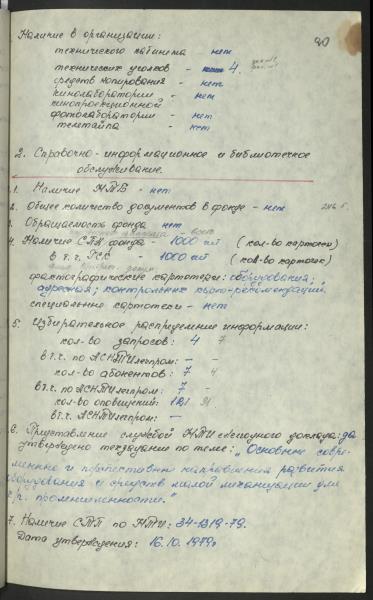 20
Наличие в организации:
технического кабинета - нет
технических уголков - 4.
средств копирования - нет
кинолаборатории - нет
кинопроекционной
фотолаборатории - нет
телетайпа - нет
2. Справочно-информационное и библиотечное
обслуживание.
1. Наличие НТБ - нет
2. Общее количество документов в фонде - нет
3. Обращаемость фонда нет
4. Наличие СПА фонда - 1000 шт (кол-во карточек)
в т.ч. ГСК - 1000 шт (кол-во карточек)
фактографические картотеки: оборудования;
адресная; контрольных карт-рекомендаций.
специальные картотеки - нет
5. Избирательное распределение информации:
кол-во запросов: 4 7
в т.ч. по АСНТИлегпром: - -
кол-во абонентов: 7 4
в т.ч. по АСНТИлегпром: 7 -
кол-во оповещений: 121 91
в т.ч. АСНТИлегпром: -
6. Представление службой НТИ исходного доклада: да
утверждено техзадание по теме: „Основные совре-
менные и перспективные направления развития
оборудования и средств малой механизации для
пр. промышленности."
7. Наличие СТП по НТИ: 34-1319-79.
Дата утверждения: 16.10.1979г